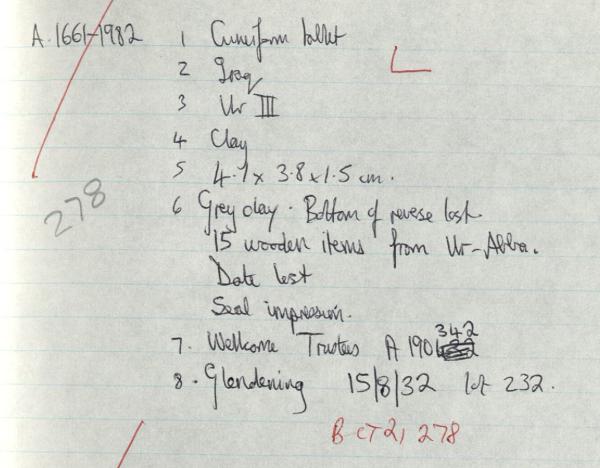 A.1661-1982 1 Cuneiform tablet
2 Iraq
3 Ur III
4 Clay
5 4.7 x 3.8 x 1.5 cm.
278
6 Grey clay. Bottom of reverse lost.
15 wooden items from Ur-Abba.
Date lost
Seal impression.
342
7. Wellcome Trustees A 190
8. Glendening 15/8/32 lot 232.
BCT2, 278